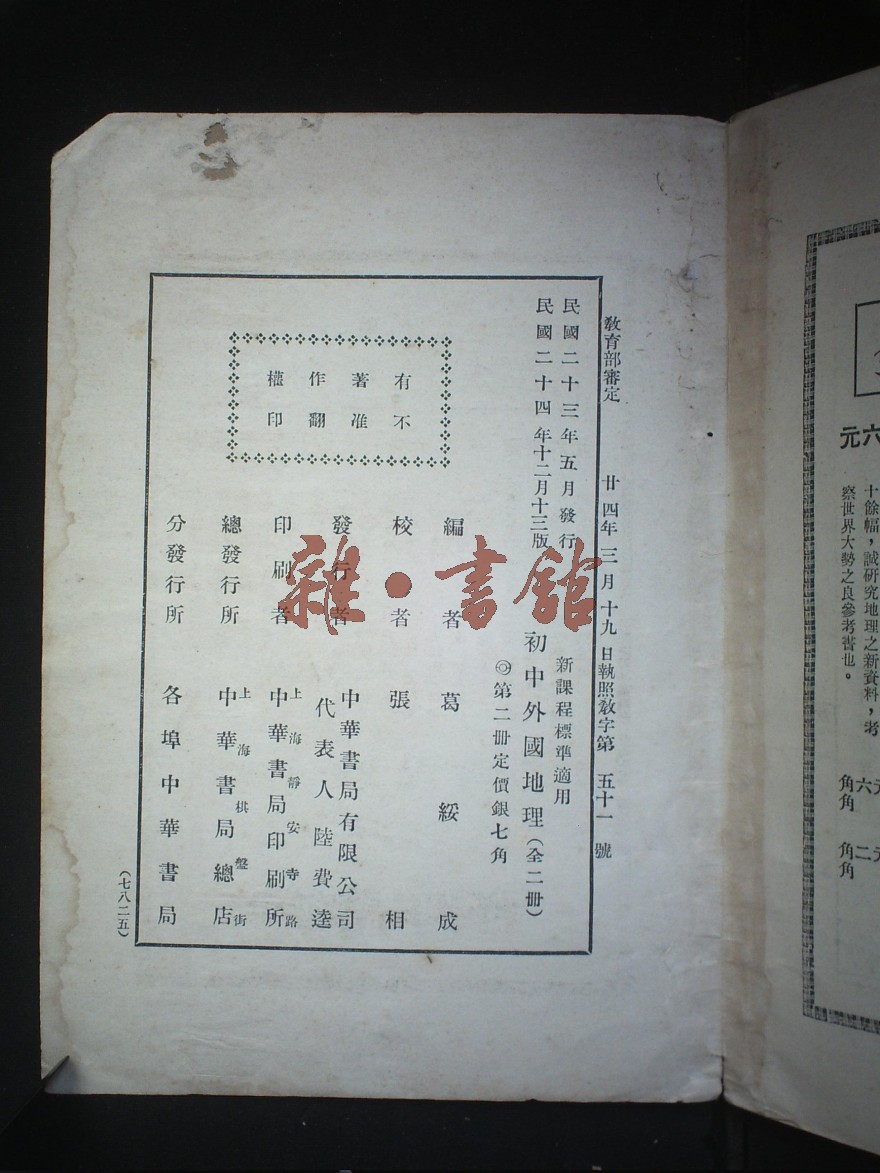 教育部審定　廿四年三月十九日執照教字第五十一號
民國二十三年五月發行
民國二十四年十二月十三版
新課程標準適用
初中外國地理（全二冊）
◎第二冊定價銀七角
有不
著准
作翻
權印
編者　葛綏成
校者　張相
發行者　中華書局有限公司
代表人陸費逵
印刷者　上海靜安寺路
中華書局印刷所
總發行所　上海棋盤街
中華書局總店
分發行所　各埠中華書局
（七八二五）
雜·書館
六元
十餘幅，誠研究地理之新資料，考
察世界大勢之良參考書也。